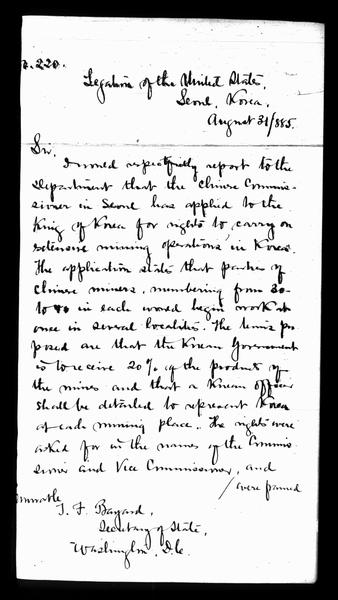 o. 220.
Legation of the United States,
Seoul, Korea,
August 31/885.
Sir,
I would respectfully report to the
Department that the Chinese Commis-
sioner in Seoul has applied to the
King of Korea for rights to carry on
extensive mining operations in Korea.
The application states that parties of
Chinese miners, numbering from 30
to 40 in each would begin work at
once in several localities. The terms pro
posed are that the Korean Government
is to receive 20% of the products of
the mines and that a Korean officer
shall be detailed to represent Korea
at each mining place. The rights were
asked for in the names of the Commis-
sioner and Vice Commissioner, and
were framed
T. F. Bayard,
Secretary of State,
Washington, D.C.